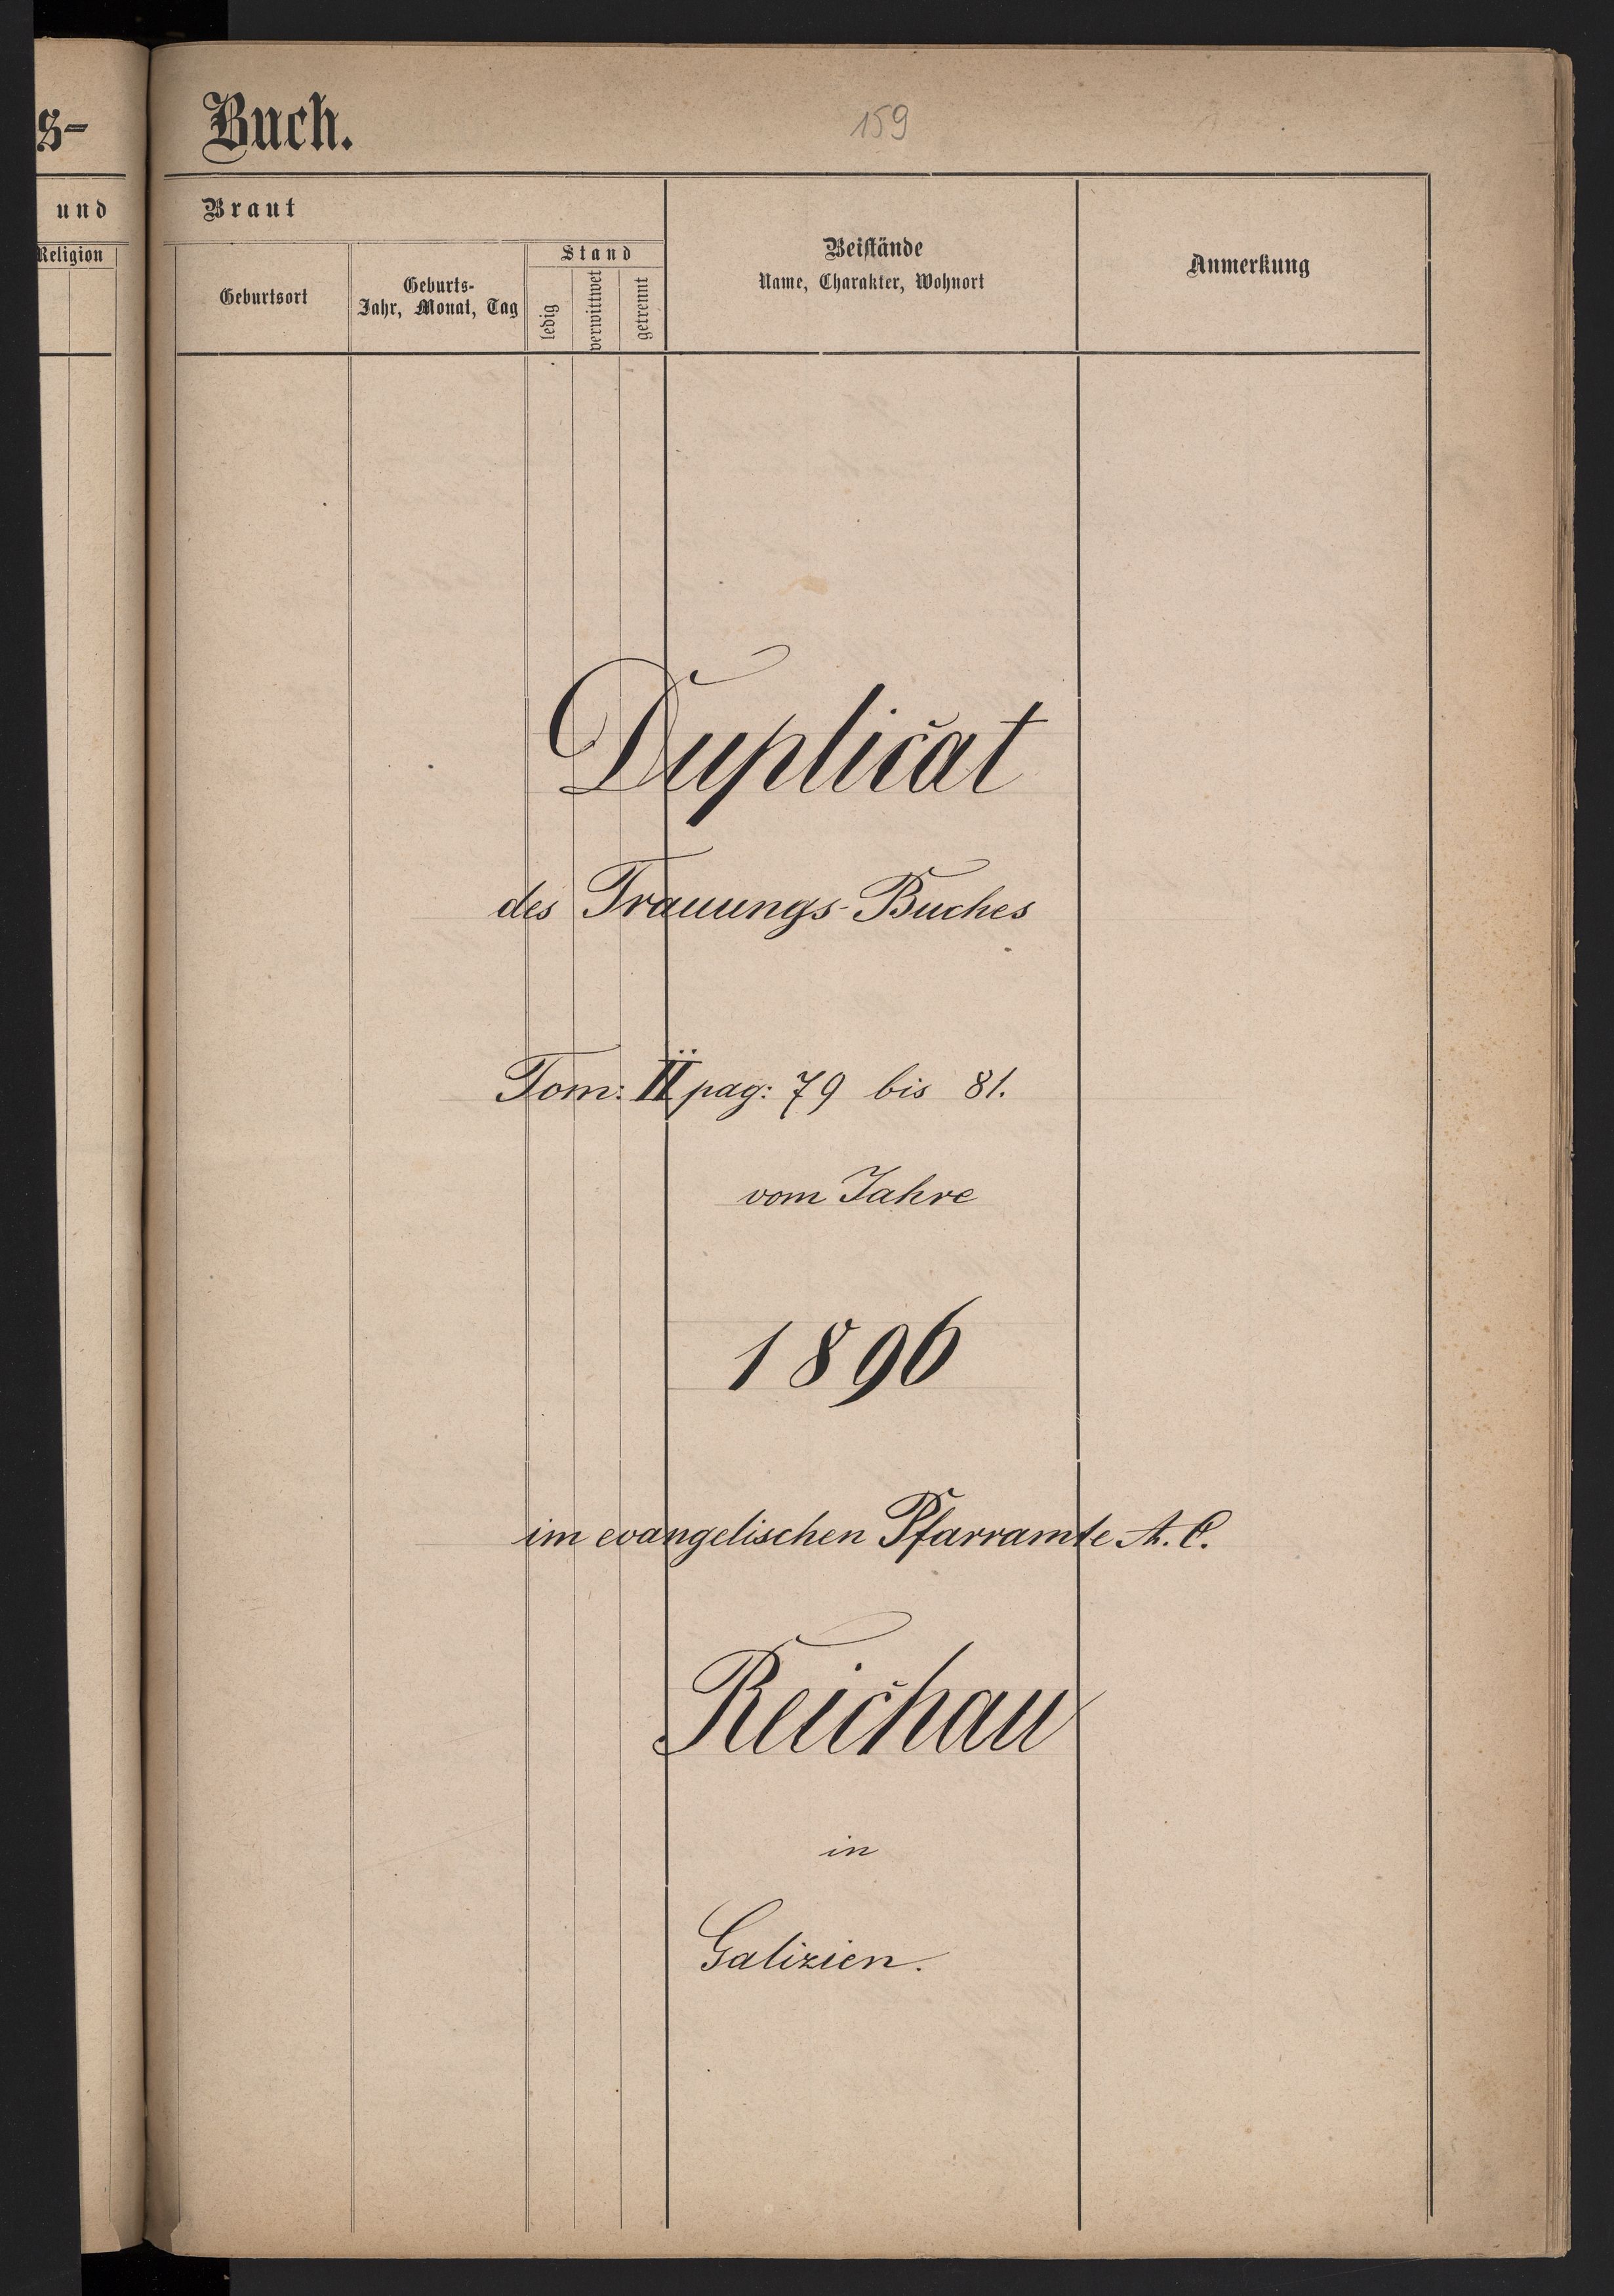 s-
und
Religion
Buch.
159
Braut
Geburtsort
Geburts-
Jahr, Monat, Tag
Stand
ledig
verwittwet
getrennt
Beistände
Name, Charakter, Wohnort
Anmerkung
Duplicat
des Trauungs-Buches
Tom: II pag: 79 bis 81.
vom Jahre
1896
im evangelischen Pfarramte A. C.
Reichau
in
Galizien.